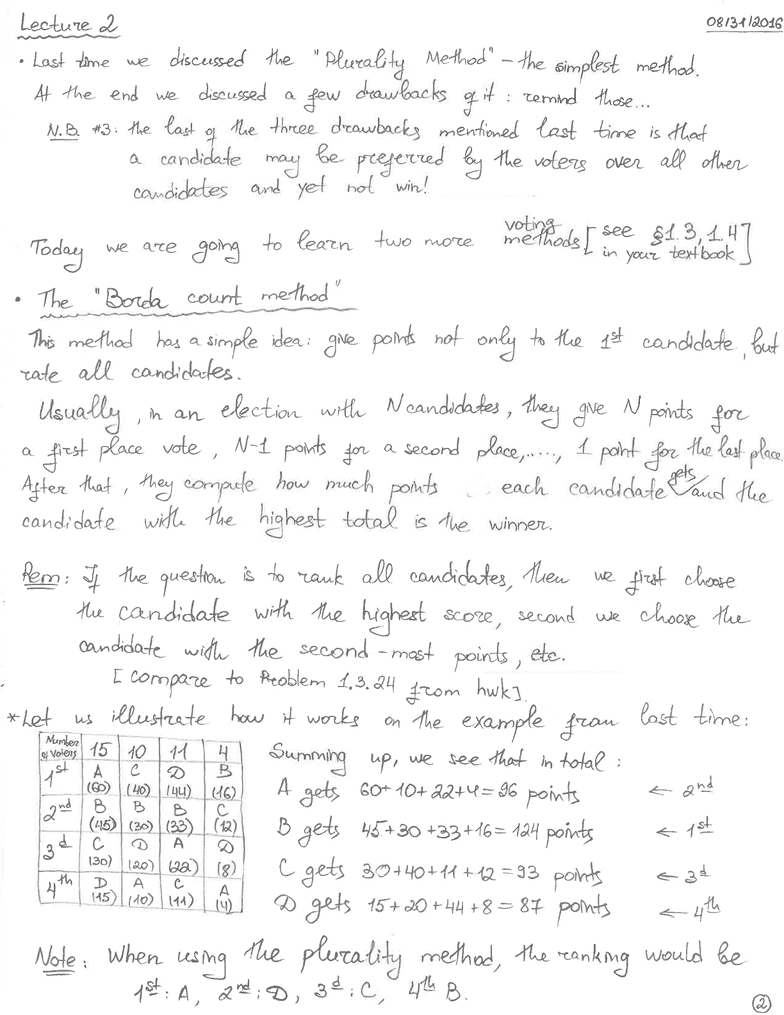 Lecture 2 08/31/2016
• Last time we discussed the "Plurality Method" - the simplest method.
At the end we discussed a few drawbacks of it: remind those...
N.B. #3: the last of the three drawbacks mentioned last time is that
a candidate may be preferred by the voters over all other
candidates and yet not win!
Today we are going to learn two more voting methods [see §1.3, 1.4 in your textbook]
• The "Borda count method"
This method has a simple idea: give points not only to the 1st candidate, but
rate all candidates.
Usually, in an election with N candidates, they give N points for
a first place vote, N-1 points for a second place,....., 1 point for the last place.
After that, they compute how much points each candidate gets and the
candidate with the highest total is the winner.
Rem: If the question is to rank all candidates, then we first choose
the candidate with the highest score, second we choose the
candidate with the second-most points, etc.
[compare to Problem 1.3.24 from hwk].
*Let us illustrate how it works on the example from last time:
Number of Voters 15 10 11 4
1st A (60) C (40) D (44) B (16)
2nd B (45) B (30) B (33) C (12)
3d C (30) D (20) A (22) D (8)
4th D (15) A (10) C (11) A (4)
Summing up, we see that in total:
A gets 60+10+22+4=96 points ← 2nd
B gets 45+30+33+16=124 points ← 1st
C gets 30+40+11+12=93 points ← 3d
D gets 15+20+44+8=87 points ← 4th
Note: When using the plurality method, the ranking would be
1st: A, 2nd: D, 3d: C, 4th B.
2